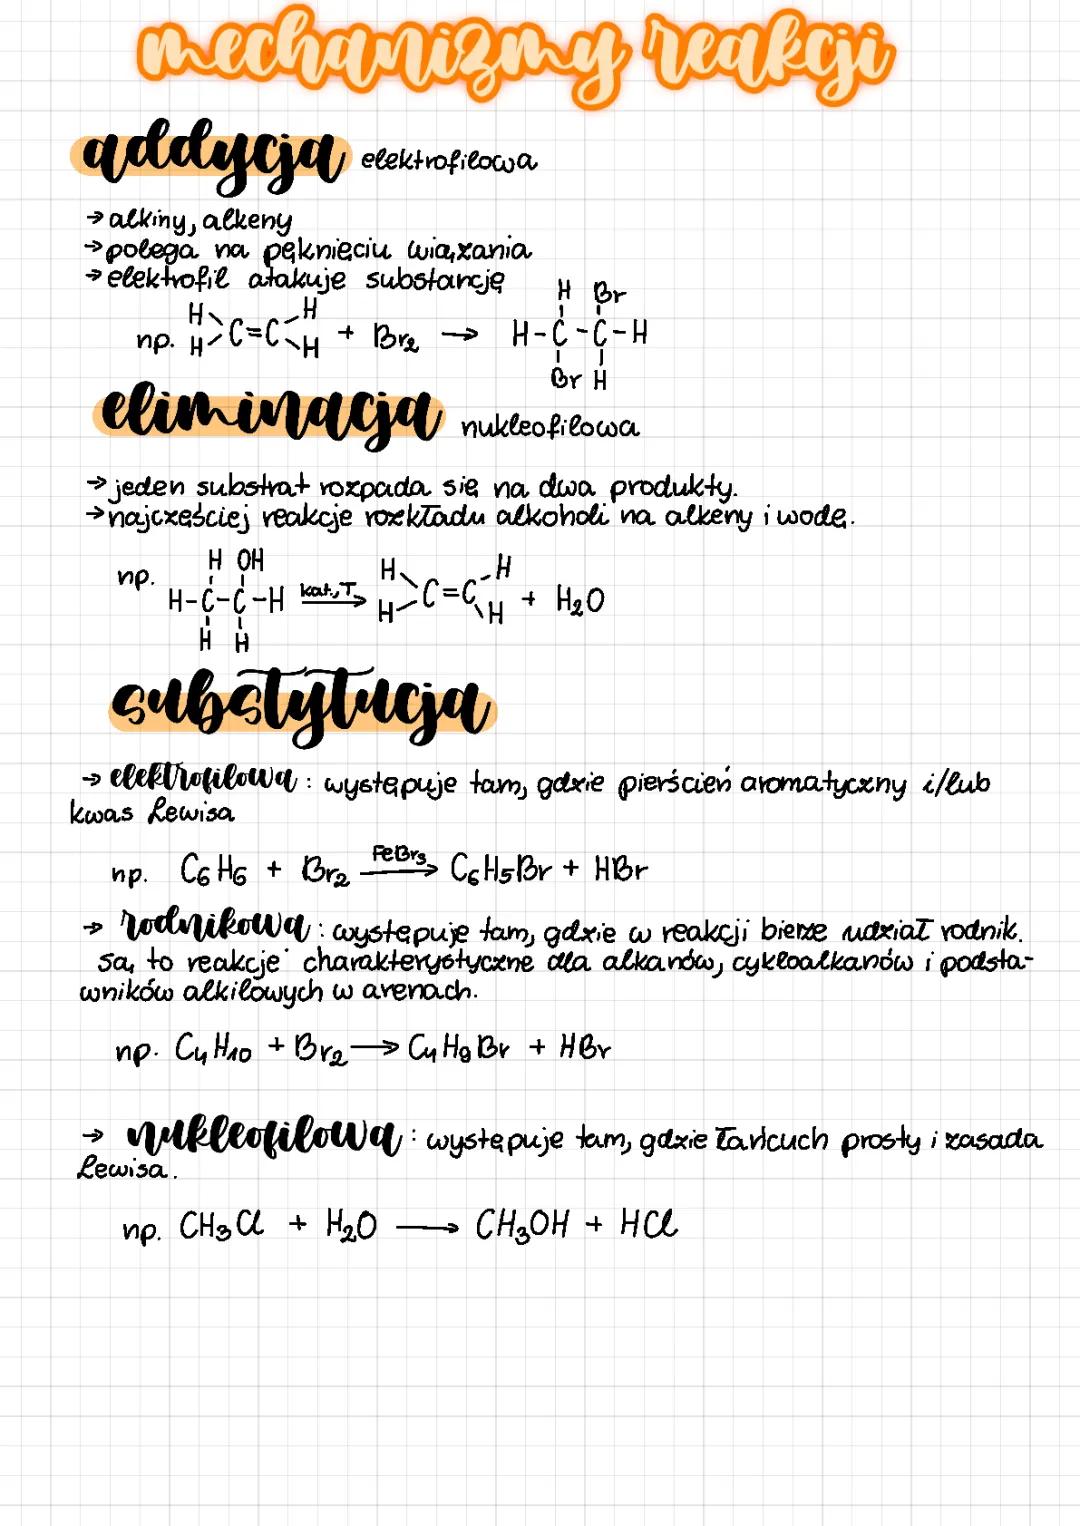 mechanizmy reakcji
addycja elektrofilowa
→ alkiny, alkeny
→ polega na pęknięciu wiązania
→ elektrofil atakuje substancję
H Br
np. H H C=C H H + Br₂ → H-C-C-H
Br H
eliminacja nukleofilowa
→ jeden substrat rozpada się na dwa produkty.
→ najcześciej reakcje rozkładu alkoholi na alkeny i wodę.
H OH
np. H-C-C-H kat., T → H H C=C H H + H₂O
H H
substytucja
→ elektrofilowa: występuje tam, gdzie pierścień aromatyczny i/lub
kwas Lewisa
np. C₆H₆ + Br₂ FeBr₃ → C₆H₅Br + HBr
→ rodnikowa: występuje tam, gdzie w reakcji bierze udział rodnik.
są to reakcje charakterystyczne dla alkanów, cykloalkanów i podsta-
wników alkilowych w arenach.
np. C₄H₁₀ + Br₂ → C₄H₉Br + HBr
→ nukleofilowa: występuje tam, gdzie łańcuch prosty i zasada
Lewisa.
np. CH₃Cl + H₂O → CH₃OH + HCl